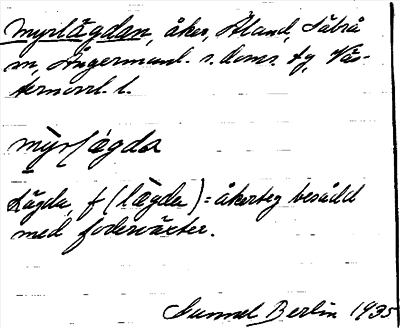 Myrlågdan, åker, Åland, Säbrå
sn, Ångermanl. s. doms. tg, Väs-
ternorrl. l.
myrlågda
Lågda, f (lågda) = åkerteg besådd
med foderväxter.
Gunnel Berlin 1935